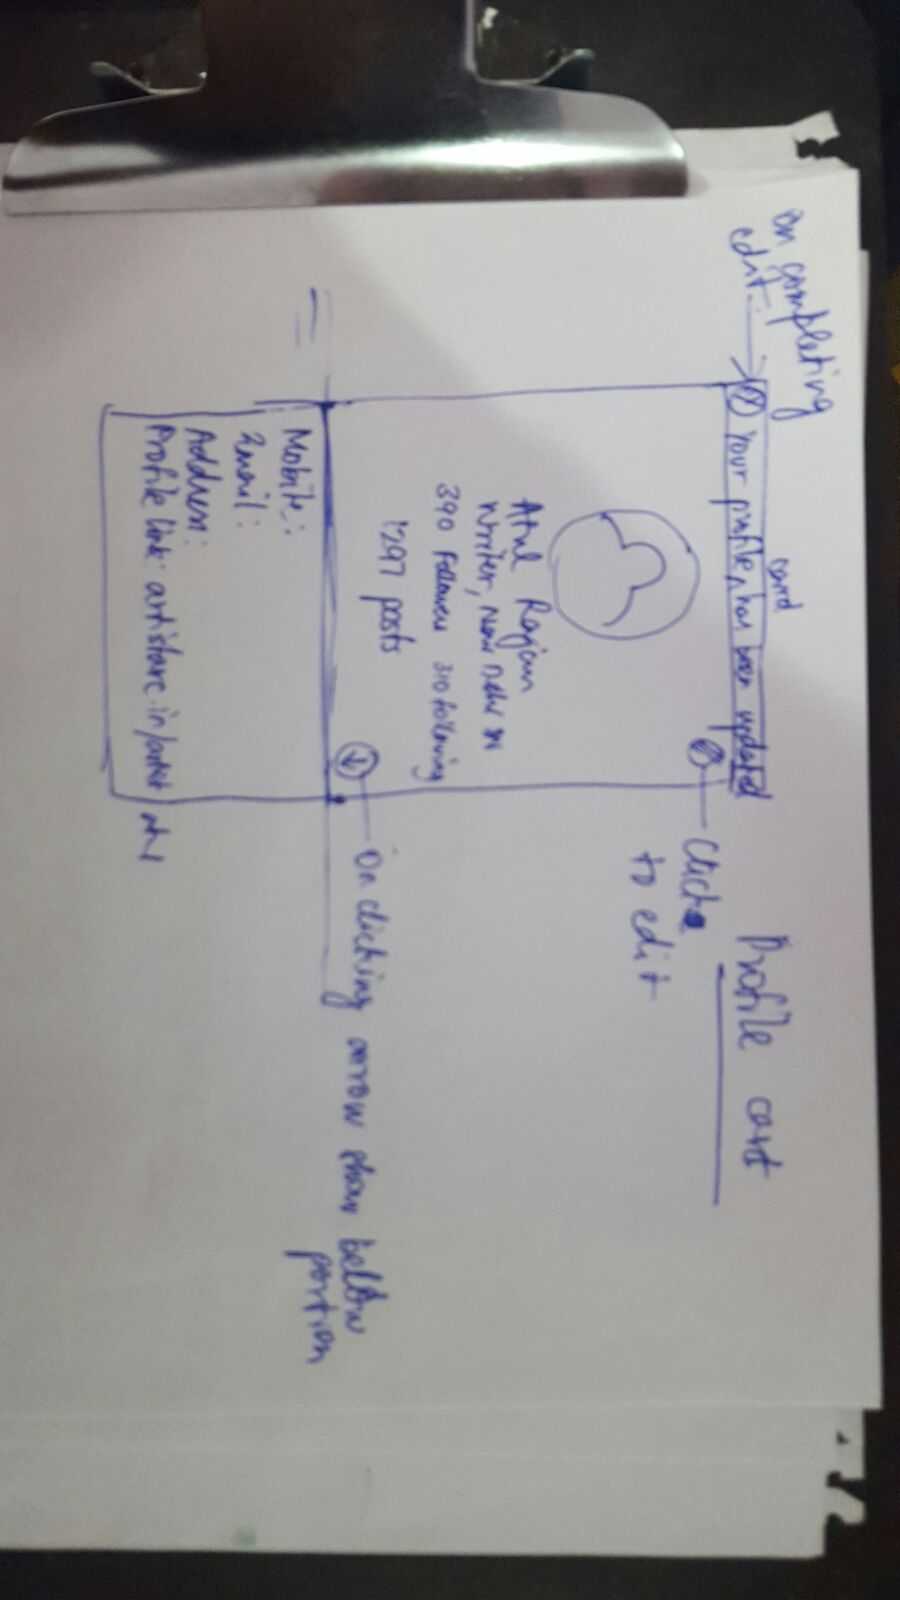 Profile card
on completing
edit:
card
Your profile has been updated
Click
to edit
Atul Rajan
Writer,
390 followers 310 following
1297 posts
On clicking arrow show below
portion
Mobile:
Email:
Address:
Profile link: artistshare.in/